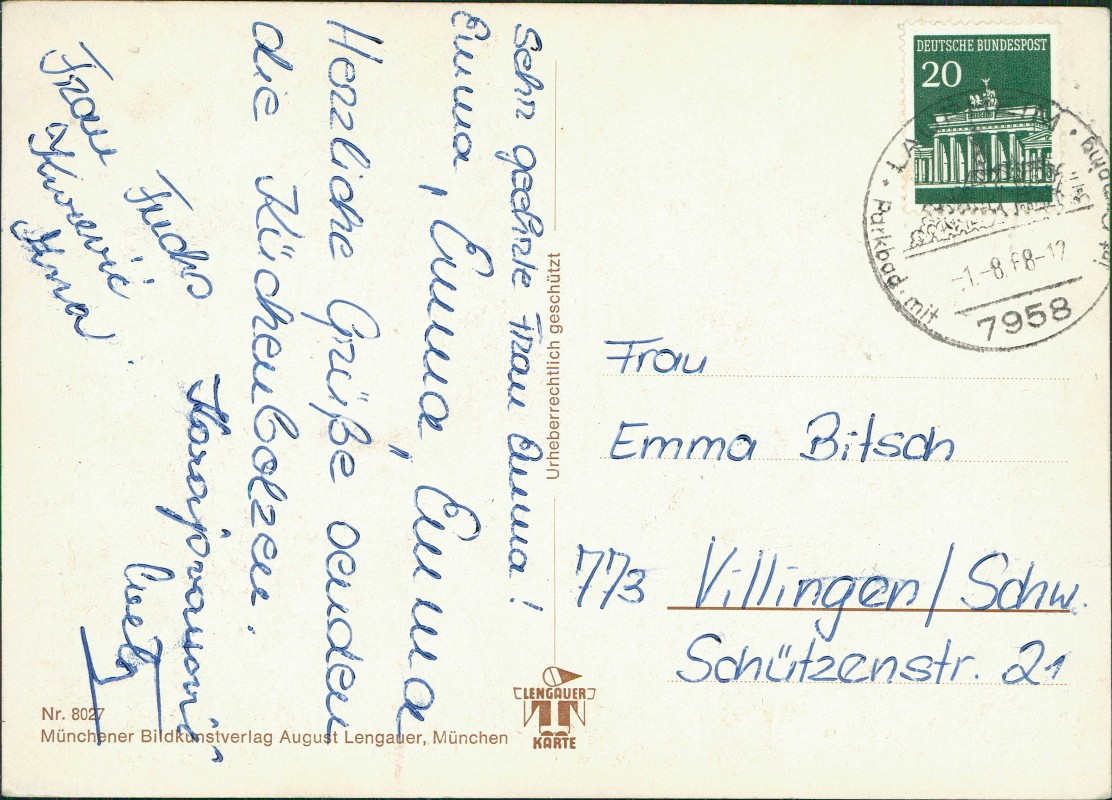 Sehr geehrte Frau Emma!
Emma, Emma, Emma
Herzliche Grüße senden
die Küchenbolzen.
Frau Fuchs
Irma
DEUTSCHE BUNDESPOST
20
Parkbad · mit
-1.-8.68-12
7958
Frau
Emma Bitsch
773 Villingen/Schw.
Schützenstr. 21
Urheberrechtlich geschützt
LENGAUER
KARTE
Nr. 8027
Münchener Bildkunstverlag August Lengauer, München